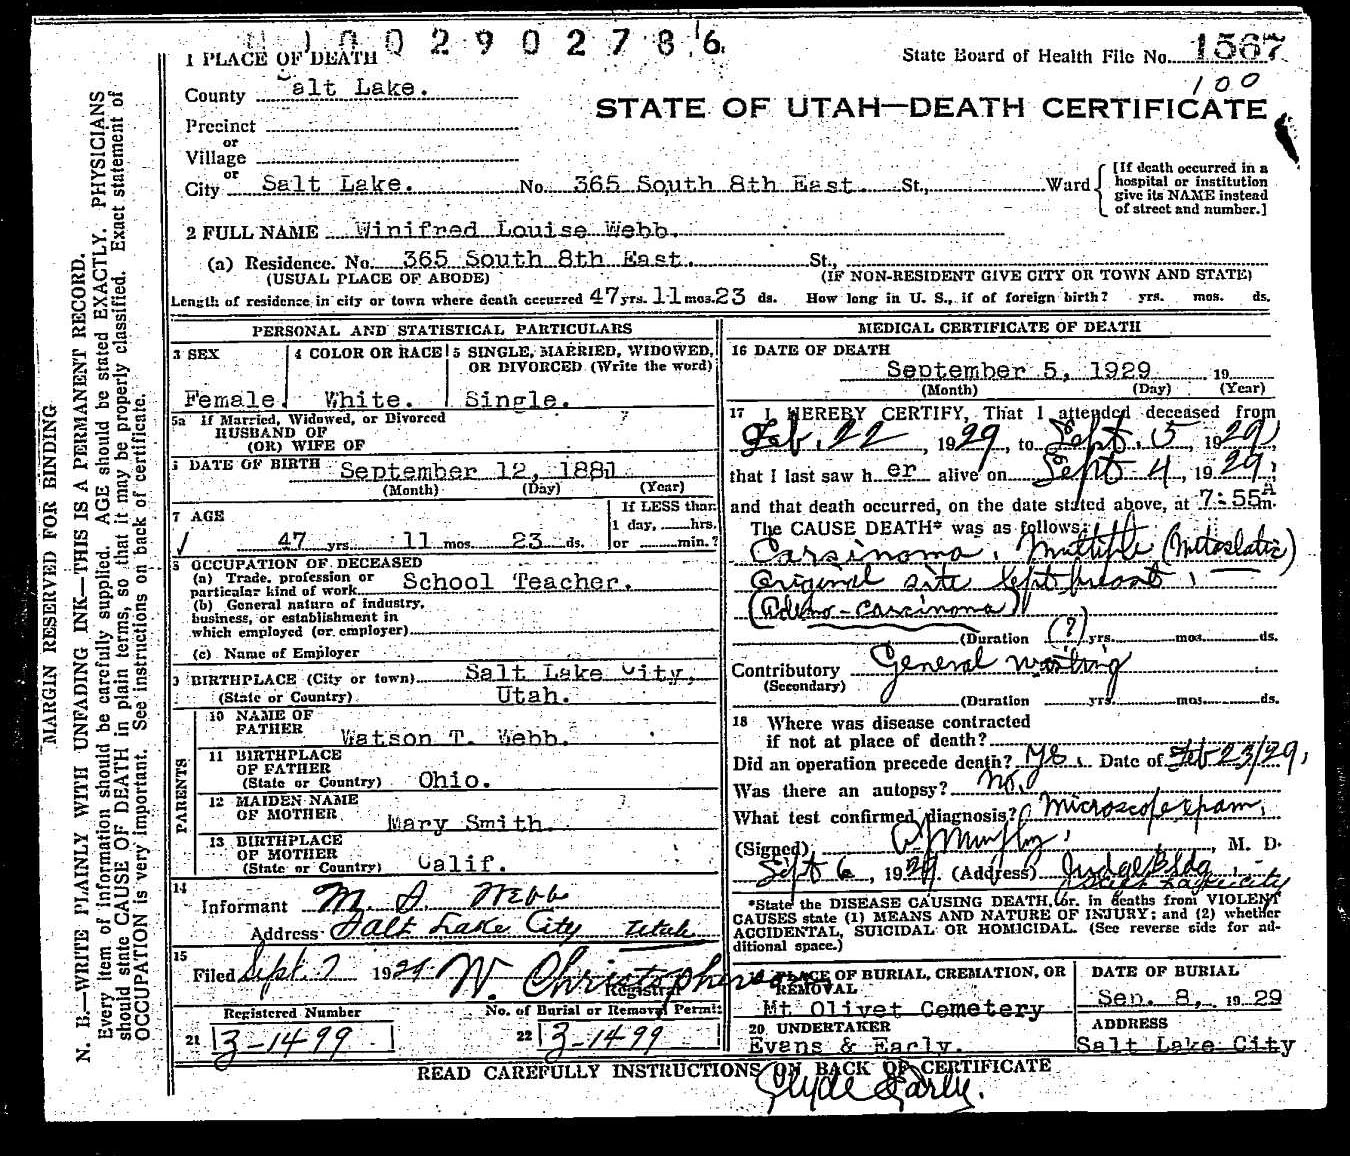 1002902786
State Board of Health File No. 1567
100
1 PLACE OF DEATH
County Salt Lake.
STATE OF UTAH—DEATH CERTIFICATE
Precinct
or
Village
or
City Salt Lake. No. 365 South 8th East. St., Ward
[If death occurred in a hospital or institution give its NAME instead of street and number.]
2 FULL NAME Winifred Louise Webb.
(a) Residence. No. 365 South 8th East. St.,
(USUAL PLACE OF ABODE) (IF NON-RESIDENT GIVE CITY OR TOWN AND STATE)
Length of residence in city or town where death occurred 47 yrs. 11 mos. 23 ds. How long in U. S., if of foreign birth? yrs. mos. ds.
PERSONAL AND STATISTICAL PARTICULARS
3 SEX
Female.
4 COLOR OR RACE
White.
5 SINGLE, MARRIED, WIDOWED,
OR DIVORCED (Write the word)
Single.
5a If Married, Widowed, or Divorced
HUSBAND OF
(OR) WIFE OF
6 DATE OF BIRTH September 12, 1881
(Month) (Day) (Year)
7 AGE
47 yrs. 11 mos. 23 ds.
If LESS than
1 day, hrs.
or min.?
8 OCCUPATION OF DECEASED
(a) Trade, profession or
particular kind of work School Teacher.
(b) General nature of industry,
business, or establishment in
which employed (or employer)
(c) Name of Employer
9 BIRTHPLACE (City or town) Salt Lake City,
(State or Country) Utah.
PARENTS
10 NAME OF
FATHER Watson T. Webb.
11 BIRTHPLACE
OF FATHER
(State or Country) Ohio.
12 MAIDEN NAME
OF MOTHER Mary Smith.
13 BIRTHPLACE
OF MOTHER
(State or Country) Calif.
14
Informant M. A. Webb
Address Salt Lake City Utah
15
Filed Sept. 7 1929 W. Christophers
Registrar
Registered Number
21 3-1499
No. of Burial or Removal Permit
22 3-1499
MEDICAL CERTIFICATE OF DEATH
16 DATE OF DEATH
September 5, 1929 19
(Month) (Day) (Year)
17 I HEREBY CERTIFY, That I attended deceased from
Feb. 22, 1929, to Sept. 5, 1929,
that I last saw her alive on Sept 4, 1929,
and that death occurred, on the date stated above, at 7:55 A m.
The CAUSE DEATH* was as follows:
Carsinoma, Multiple (Mitoslatic)
Original site left breast,
(Adeno-carcinoma)
(Duration (?) yrs. mos. ds.
Contributory General wasting
(Secondary)
(Duration yrs. mos. ds.
18 Where was disease contracted
if not at place of death?
Did an operation precede death? Yes. Date of Feb 23/29,
Was there an autopsy? No.
What test confirmed diagnosis? Microscope exam,
(Signed) Murphy, M. D.
Sept 6, 1929. (Address) Judge Bldg,
Salt Lake City
*State the DISEASE CAUSING DEATH, or, in deaths from VIOLENT
CAUSES state (1) MEANS AND NATURE OF INJURY; and (2) whether
ACCIDENTAL, SUICIDAL OR HOMICIDAL. (See reverse side for ad-
ditional space.)
19 PLACE OF BURIAL, CREMATION, OR
REMOVAL
Mt Olivet Cemetery
DATE OF BURIAL
Sep. 8, 1929
20 UNDERTAKER
Evans & Early.
ADDRESS
Salt Lake City
READ CAREFULLY INSTRUCTIONS ON BACK OF CERTIFICATE
Clyde Early.
MARGIN RESERVED FOR BINDING
N. B.—WRITE PLAINLY WITH UNFADING INK—THIS IS A PERMANENT RECORD.
Every item of information should be carefully supplied. AGE should be stated EXACTLY. PHYSICIANS
should state CAUSE OF DEATH in plain terms, so that it may be properly classified. Exact statement of
OCCUPATION is very important. See instructions on back of certificate.